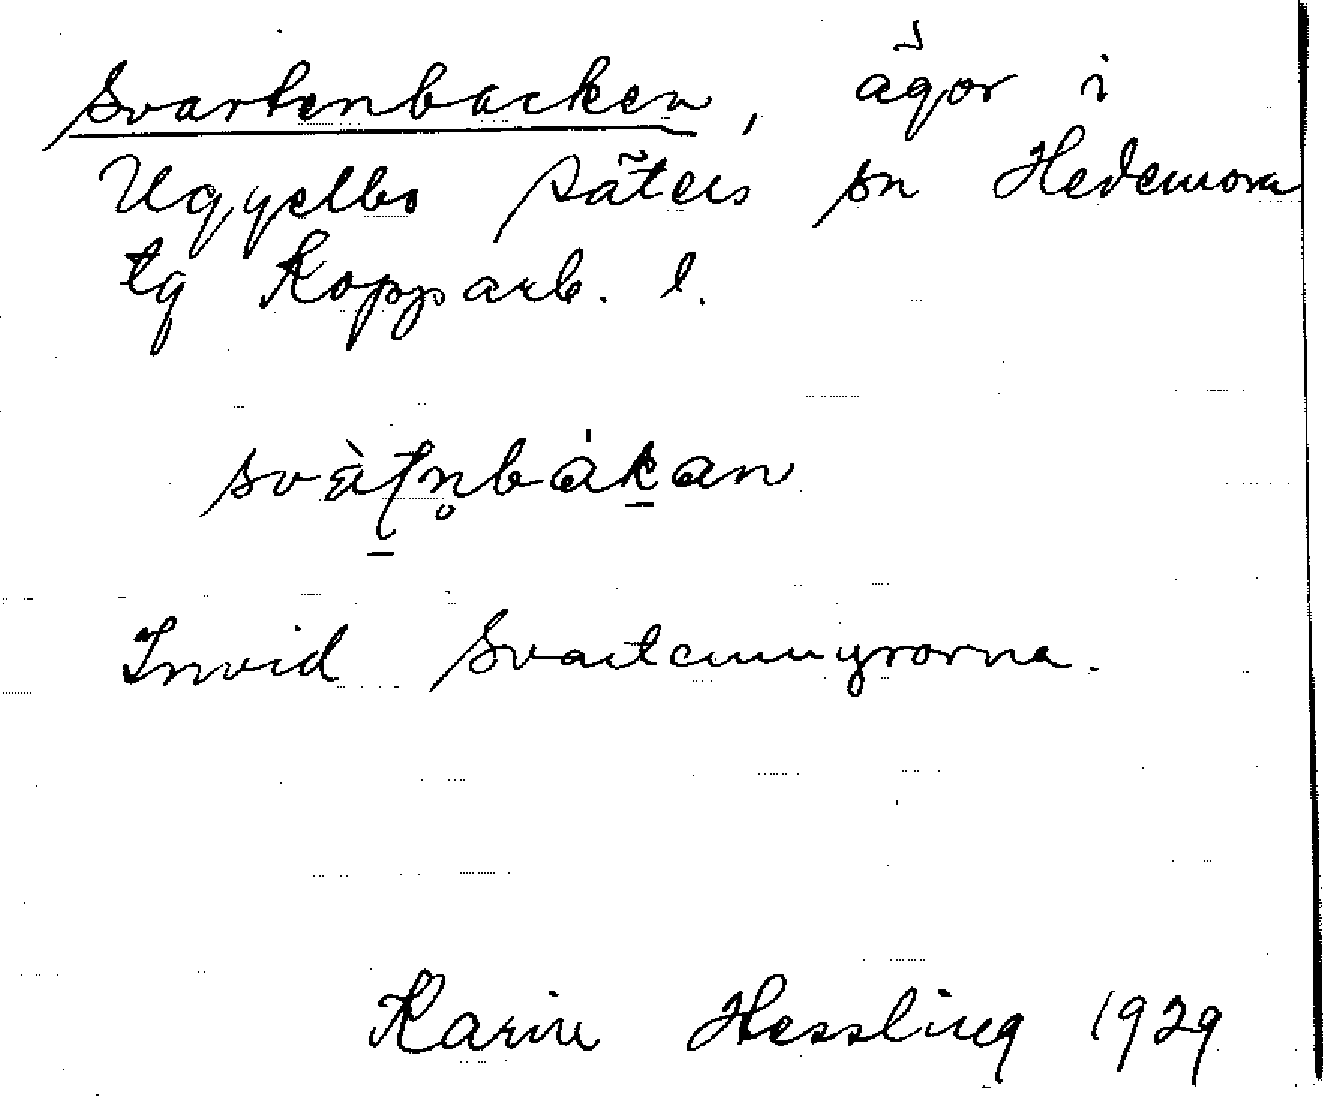 Svartenbacken, ägor i
Uggelbo Säters sn Hedemora
tg Kopparb. l.
svàtn̥bákan
Invid Svartenmyrorna.
Karin Hessling 1929